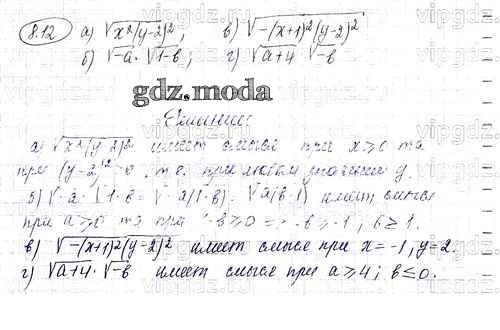 8.12 а) √x²(y-2)²; в) √-(x+1)²(y-2)²
б) √-a · √1-b; г) √a+4 · √-b
gdz.moda
Решение:
а) √x²(y-2)² имеет смысл при x≥0 та
при (y-2)²≥0, т.е. при любом значении y.
б) √-a · √1-b = √-a(1-b) = √a(b-1) имеет смысл
при a≥0 та при -b≥0 => -b≥-1, b≥1.
в) √-(x+1)²(y-2)² имеет смысл при x=-1, y=2.
г) √a+4 · √-b имеет смысл при a≥4; b≤0.